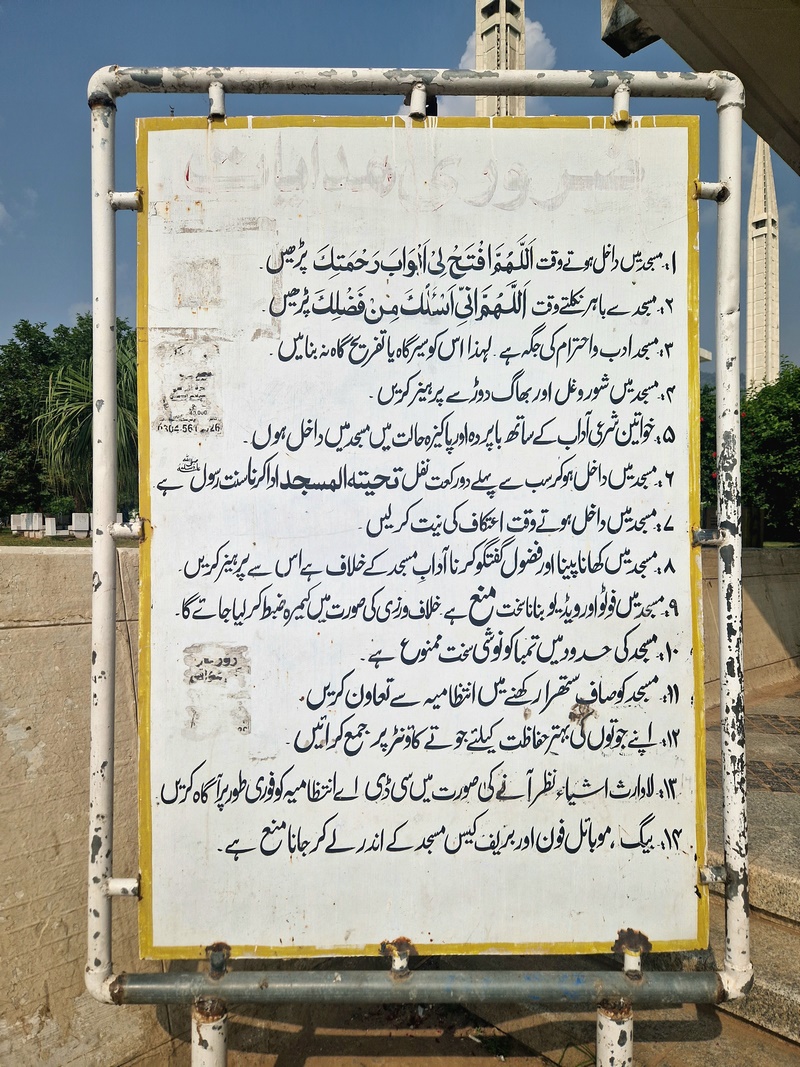 ضروری ہدایات
۱۔ مسجد میں داخل ہوتے وقت اَللّٰهُمَّ افْتَحْ لِیْ اَبْوَابَ رَحْمَتِكَ پڑھیں۔
۲۔ مسجد سے باہر نکلتے وقت اَللّٰهُمَّ اِنِّیْ اَسْئَلُكَ مِنْ فَضْلِكَ پڑھیں۔
۳۔ مسجد ادب و احترام کی جگہ ہے۔ لہذا اس کو سیر گاہ یا تفریح گاہ نہ بنائیں۔
۴۔ مسجد میں شور و غل اور بھاگ دوڑ سے پرہیز کریں۔
۵۔ خواتین شرعی آداب کے ساتھ باپردہ اور پاکیزہ حالت میں مسجد میں داخل ہوں۔
۶۔ مسجد میں داخل ہو کر سب سے پہلے دو رکعت نفل تحیتہ المسجد ادا کرنا سنت رسول ﷺ ہے
۷۔ مسجد میں داخل ہوتے وقت اعتکاف کی نیت کر لیں۔
۸۔ مسجد میں کھانا پینا اور فضول گفتگو کرنا آداب مسجد کے خلاف ہے اس سے پرہیز کریں۔
۹۔ مسجد میں فوٹو اور ویڈیو بنانا سخت منع ہے خلاف ورزی کی صورت میں کیمرہ ضبط کر لیا جائے گا۔
۱۰۔ مسجد کی حدود میں تمباکو نوشی سخت ممنوع ہے۔
۱۱۔ مسجد کو صاف ستھرا رکھنے میں انتظامیہ سے تعاون کریں۔
۱۲۔ اپنے جوتوں کی بہتر حفاظت کیلئے جوتے کاؤنٹر پر جمع کرائیں۔
۱۳۔ لاوارث اشیاء نظر آنے کی صورت میں سی ڈی اے انتظامیہ کو فوری طور پر آگاہ کریں۔
۱۴۔ بیگ، موبائل فون اور بریف کیس مسجد کے اندر لے کر جانا منع ہے۔